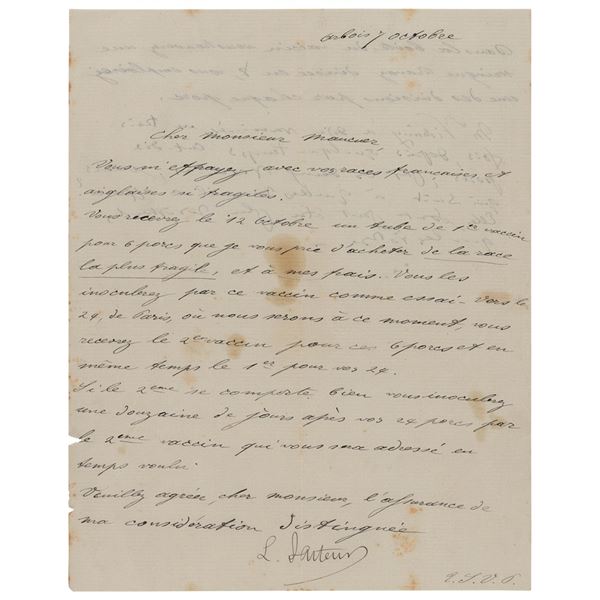 Arbois 7 octobre
Cher monsieur Maucuer
Vous m'effrayez avec vos races françaises et
anglaises si fragiles.
Vous recevrez le 12 octobre un tube de 1er vaccin
pour 6 porcs que je vous prie d'acheter de la race
la plus fragile, et à mes frais. Vous les
inoculerez par ce vaccin comme essai. Vers le
24, de Paris, où nous serons à ce moment, vous
recevrez le 2e vaccin pour ces 6 porcs et en
même temps le 1er pour vos 24.
Si le 2eme se comporte bien vous inoculerez
une douzaine de jours après vos 24 porcs par
le 2eme vaccin qui vous sera adressé en
temps voulu.
Veuillez agréer, cher monsieur, l'assurance de
ma considération distinguée
L. Pasteur
T. S. V. P.